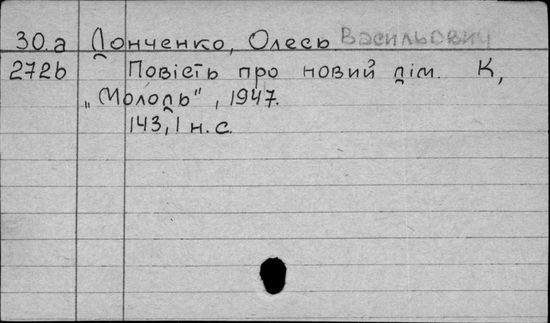 30.a Донченко, Олесь Васильович
272b Повість про новий дім. К,
„Молодь", 1947.
143,1 н.с.